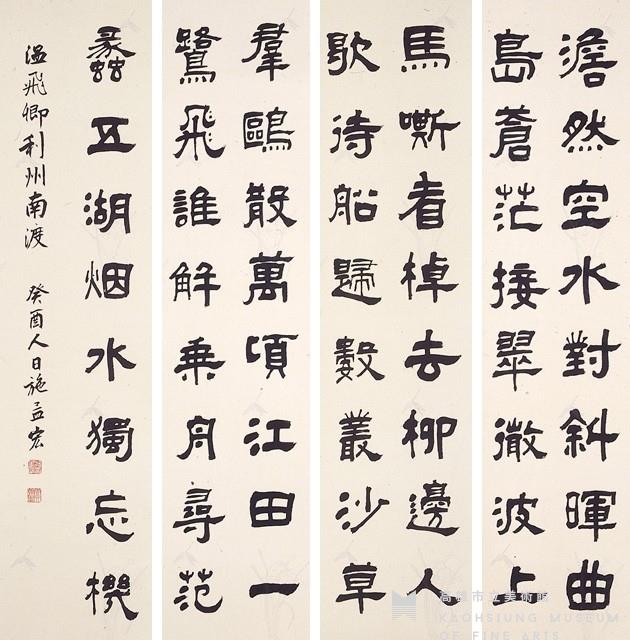 澹然空水對斜暉曲
島蒼茫接翠微波上
馬嘶看棹去柳邊人
歇待船歸數叢沙草
羣鷗散萬頃江田一
鷺飛誰解乗舟尋范
蠡五湖烟水獨忘機
温飛卿利州南渡 癸酉人日施孟宏
高雄市立美術館
KAOHSIUNG MUSEUM
OF FINE ARTS